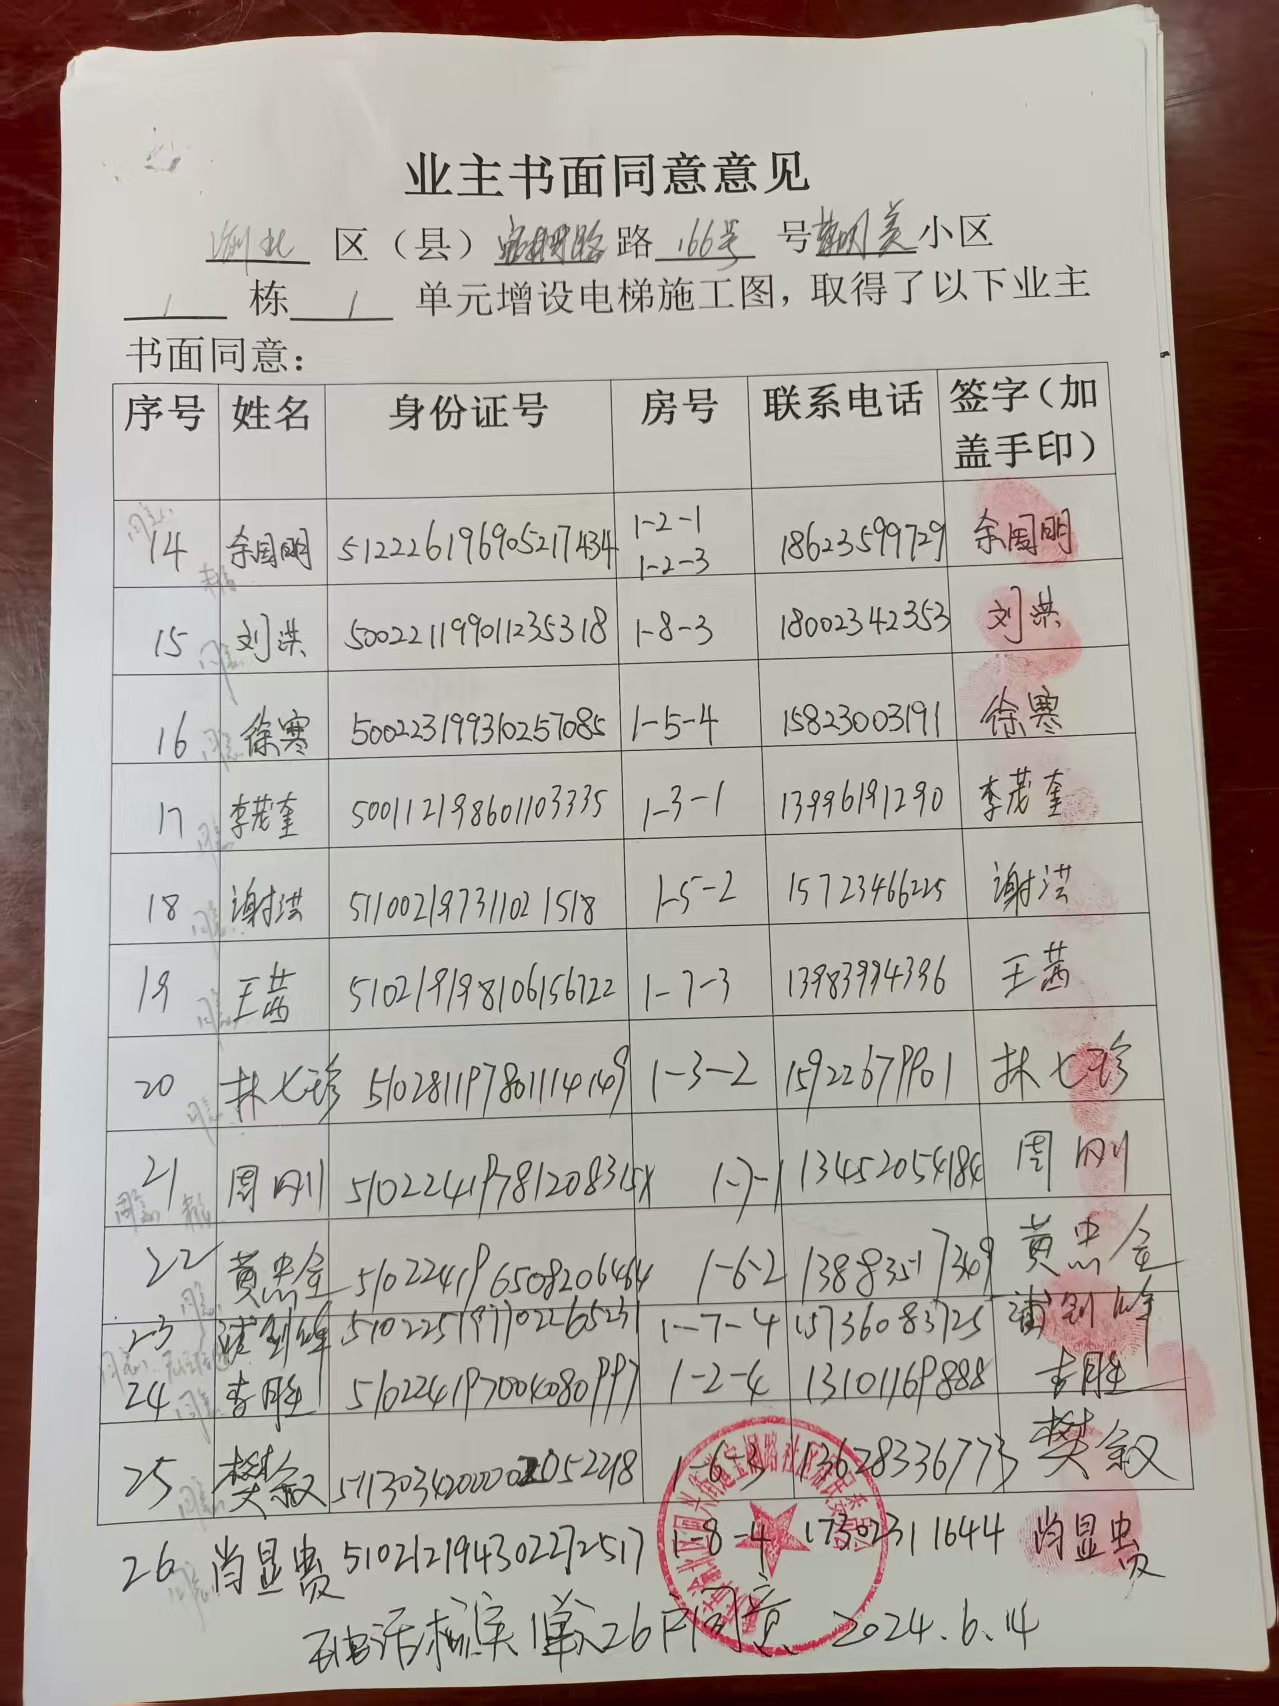 业主书面同意意见
渝北 区（县） 路 166号 号 小区
1 栋 1 单元增设电梯施工图，取得了以下业主
书面同意：
序号 姓名 身份证号 房号 联系电话 签字（加盖手印）
14 余国明 512226196905217434 1-2-1 1-2-3 18623599729 余国明
15 刘洪 500221199011235318 1-8-3 18002342353 刘洪
16 徐寒 500223199310257085 1-5-4 15823003191 徐寒
17 李茂奎 500112198601103335 1-3-1 13996191290 李茂奎
18 谢洪 511002197311021518 1-5-2 15723466225 谢洪
19 王茜 510219198106156722 1-7-3 13983994396 王茜
20 林七珍 510281197801114149 1-3-2 15922679901 林七珍
21 周刚 51022419781208315X 1-7-1 13452054184 周刚
22 黄忠全 510224196508206464 1-6-2 13883517369 黄忠全
23 510225197702265231 1-7-4 15736083725
24 李胜 1-2-4 13101169888 李胜
25 樊叙 1-6-3 13628336773 樊叙
26 肖显贵 510212194302272517 1-8-4 17302311644 肖显贵
电话核实 1单元26户同意 2024.6.14